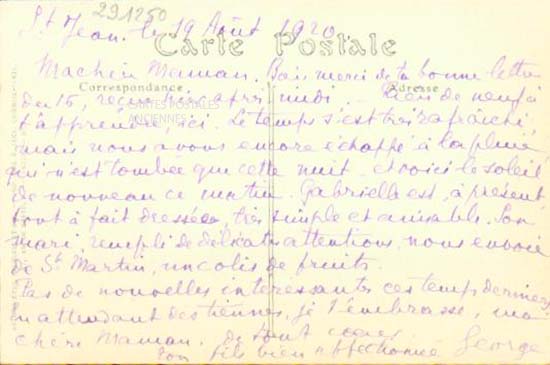 291250
St Jean. le 19 Août 1920
Carte Postale
Ma chère Maman. Bien merci de ta bonne lettre
Correspondance
Adresse
du 16, reçue hier après midi. Rien de neuf à
CARTES POSTALES
ANCIENNES
t'apprendre, ici. Le temps s'est très rafraîchi
mais nous avons encore échappé à la pluie
qui n'est tombée que cette nuit. et voici le soleil
de nouveau ce matin. Gabrielle est, à présent,
tout à fait dressée, très simple et aimable. Son
mari, rempli de délicates attentions, nous envoie
de St Martin, un colis de fruits.
Pas de nouvelles intéressantes ces temps derniers
en attendant des tiennes, je t'embrasse, ma
chère Maman. de tout coeur
Ton fils bien affectionné George